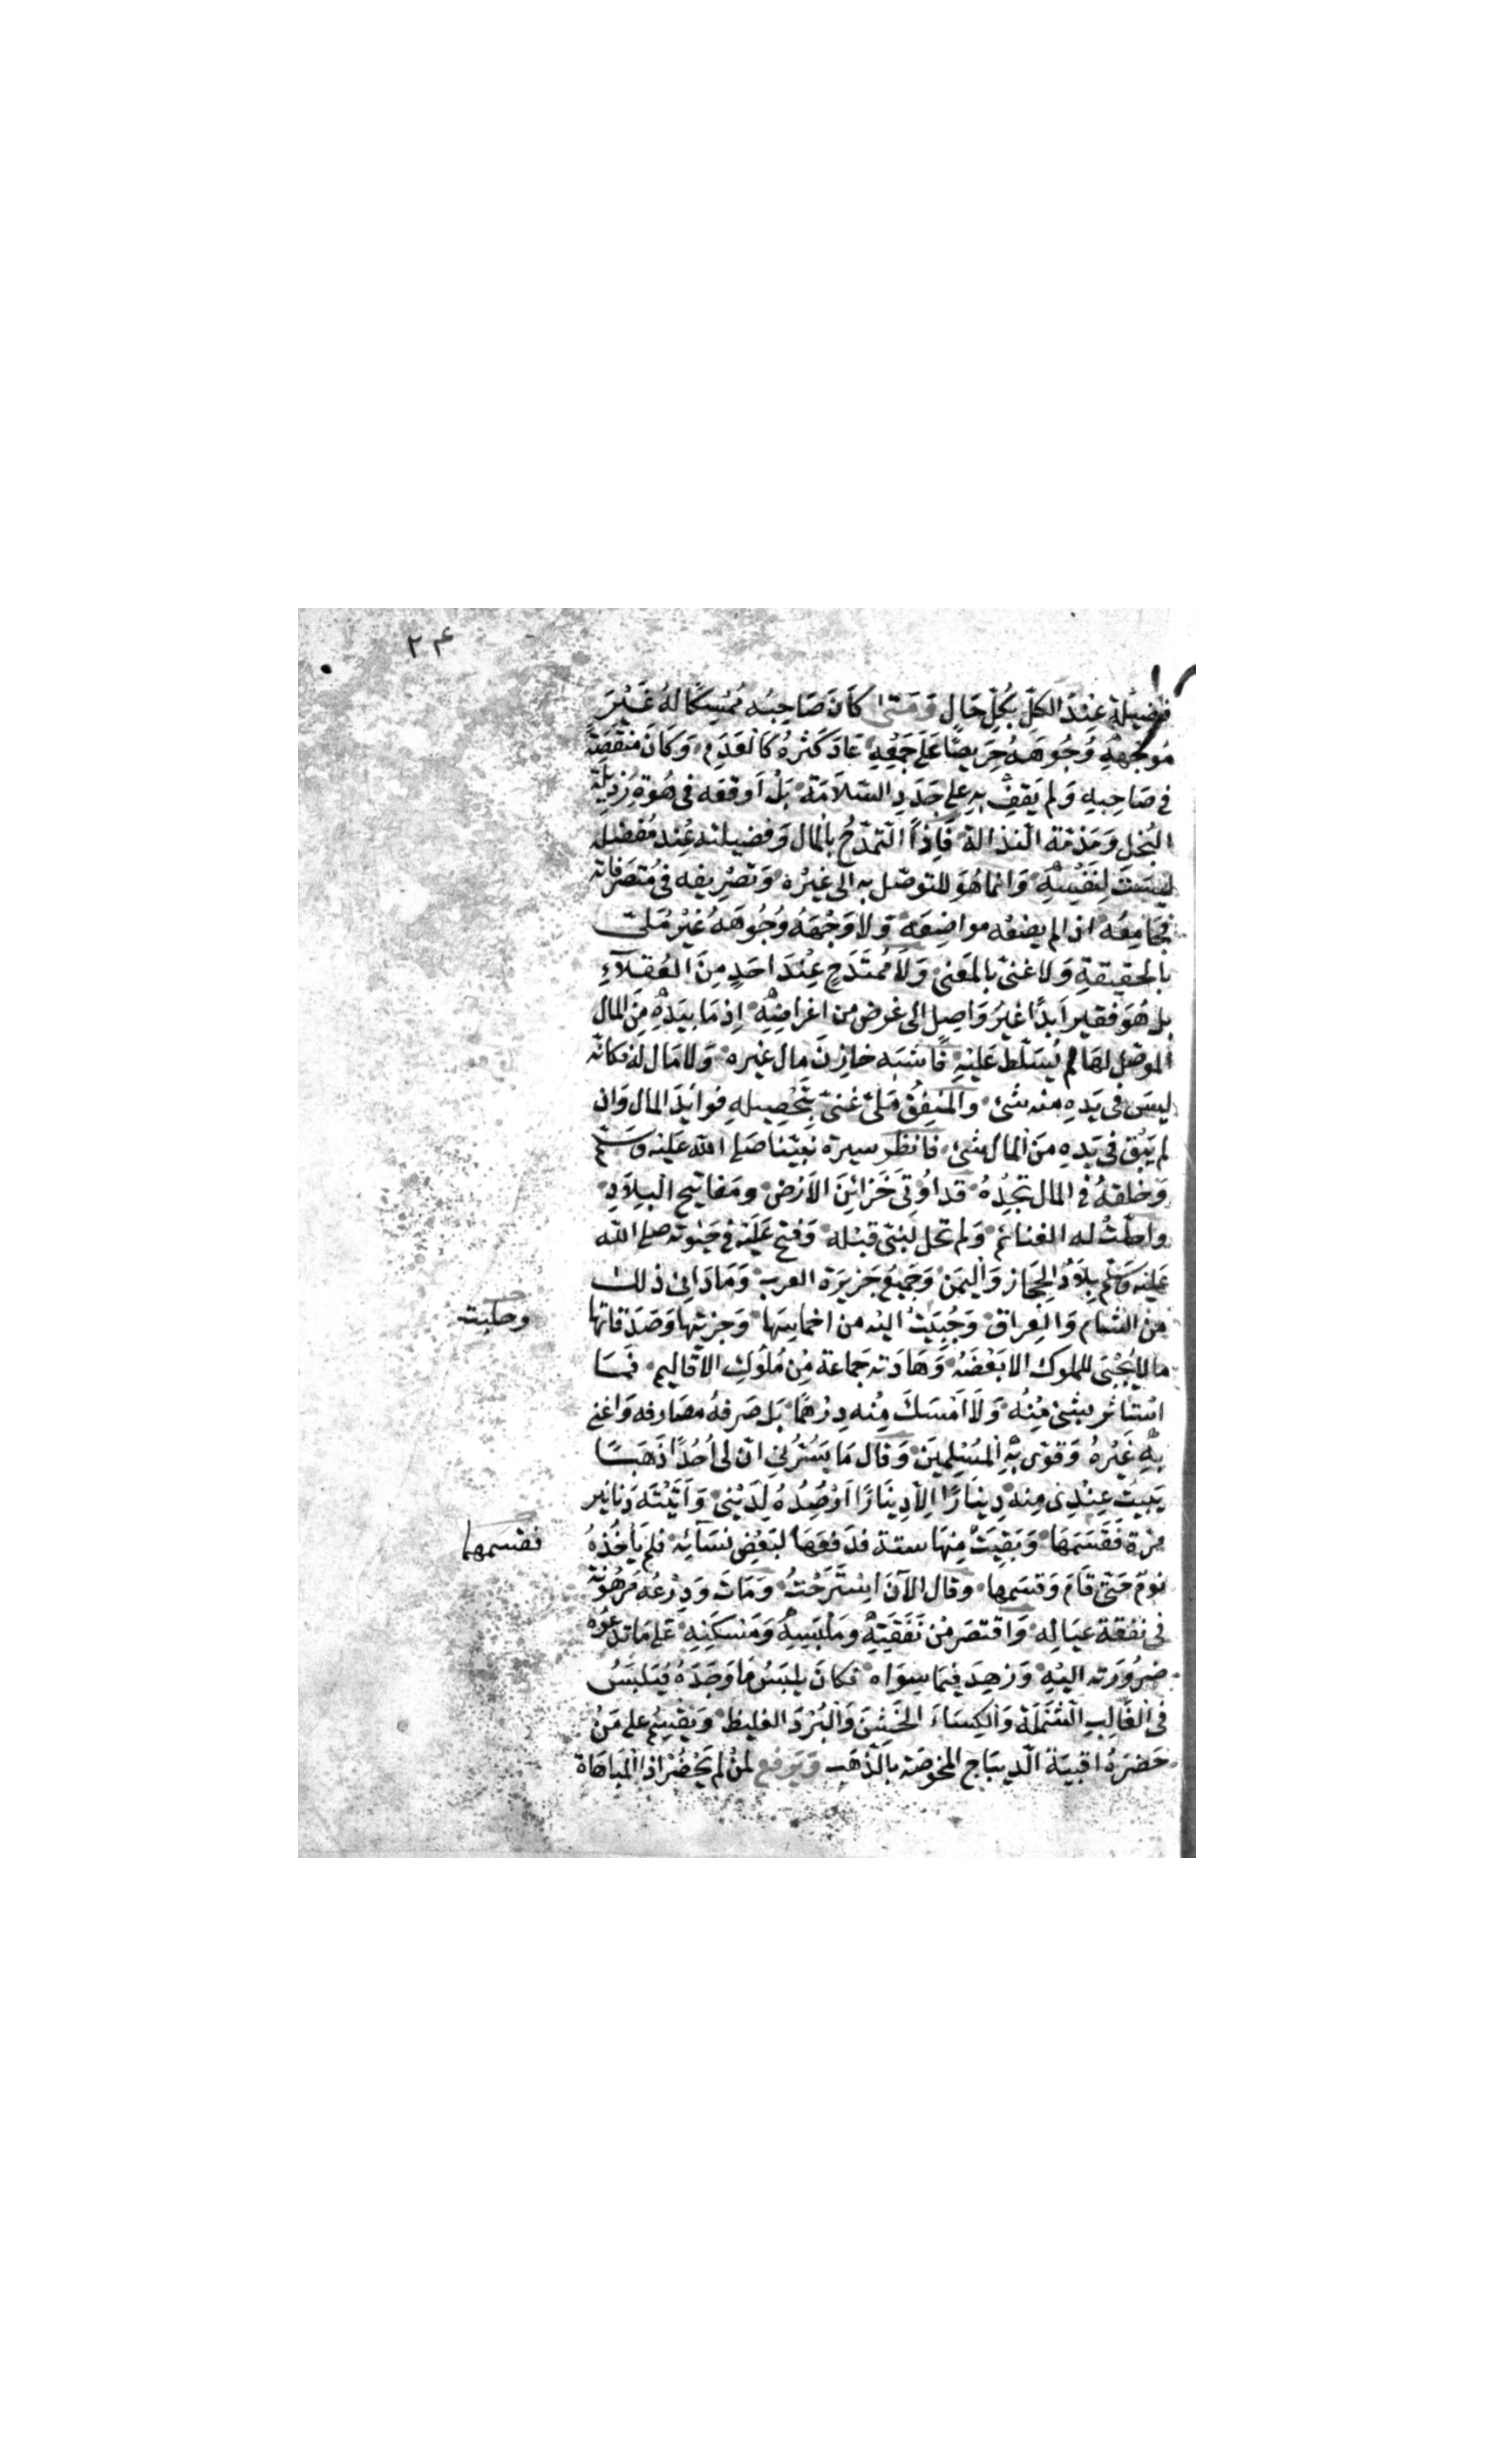 ٢۴
فَضِيْلة عِنْدَ الكلّ بِكُلِّ حَالٍ وَمَتىٰ كَانَ صَاحِبُه مُمْسِكًا لهُ غَيْرَ
مُوجِّهِهِ وُجُوهَهُ حَرِيصًا عَلىٰ جَمْعِهِ عَادَ كَثْرهُ كَالعَدَمِ وَكَانَ مَنْقَصَةً
في صَاحِبِهِ وَلم يَقِفْ بهِ على جَدَدِ السّلاَمَة بَلْ اَوقعَه في هُوّةِ رَذِيلَةِ
البُخلِ وَمَذمّة النّذالة فَاِذًا التّمدّحُ بالمال وَفَضيلته عِنْد مُفَضِّله
لَيْسَتْ لِنَفْسِهِ وَانما هُوَ للتوصّل به الى غيْره وَتَصْرِيفِه في مُتَصَرّفاته
فجَامِعُه اذا لم يضعْه مواضِعَه وَلا وَجّهَهُ وُجُوهَهُ غَيْر مَلىّ
بالحقيقةِ وَلا غنىّ بِالمَعْنى وَلَا مُمْتَدَحٍ عِنْدَ اَحَدٍ مِنَ العُقلَآءِ
بل هُوَ فقير اَبَدًا غَيْرُ وَاصِلٍ الى غرض من اغراضِهِ اِذ مَا بيَدِهِ مِنَ المال
الموصّل لهَا لم يُسَلّط عَليْهِ فاشبَه خازنَ مال غيره وَلا مَال لهُ فكانّه
ليسَ في يَدِهِ منه شئ وَالمنفِقُ مَلىّ غنىّ بتَحْصِيلهِ فوائدَ المال وَان
لم يَبْق في يَدِهِ مِنَ المال شئ فانظر سيرة نَبيّنا صَلى الله عَليْه وَسَلّم
وَخلقهُ في المال تجدْهُ قد اُوتي خَزائِنَ الاَرْض ومَفاتيح البِلاَدِ
واحلّتْ له الغنائم وَلم تحل لِنَبيّ قبْله وَفتح عَليْه في حَيٰوته صلى الله
عَليْه وَسَلّم بِلاَدُ الحِجَاز وَاليَمَن وَجَميْعُ جَزيرَة العرب وَمَا دَانىٰ ذلك
مِن الشام وَالعِراق وَجُبِيَتْ اليْه من اخماسِهَا وَجزيتها وَصَدَقاتها
وجلبت
مالا يُجْبىٰ للملوك الا بَعْضَهُ وَهَادَته جَماعة مِنْ مُلُوكِ الاَقاليم فمَا
استاثر بشئ مِنْهُ وَلاَ اَمْسَكَ مِنْه دِرْهَمًا بَل صَرفهُ مصَارفه وَاغنىٰ
بِهِ غَيْرهُ وَقوّى بِهِ المُسْلِمينَ وَقال مَا يَسُرُّني انّ لي اُحُدًا ذَهَبًا
يَبيتُ عِنْدِى مِنه دِينارٌ اِلاّ دِينَارًا اَرْصُدُهُ لِدَيْني وَاَتَتْه دَنانير
مرّة فَقَسَمَهَا وَبَقِيَتْ مِنهَا ستة فَدَفعَهَا لبَعْضِ نسَآئِه فلم يَأخُذْهُ
فقسمها
نَوْم حَتى قامَ وَقسَمها وقال الآن اسْتَرَحْتُ وَمَاتَ وَدِرْعُه مَرهُونَة
في نفقة عيَالِه وَاقتصَر مِن نَفَقَتِهِ ومَلْبَسِهِ وَمَسْكَنِهِ عَلى مَا تدعُوه
ضرُورَته اليْهِ وَزهِدَ فِيمَا سِوَاه فكانَ يلبَسُ مَا وَجَدَهُ فيَلبَسُ
في الغَالِبِ الشَّمْلَة وَالكِسَاءَ الخَشِنَ وَالبُرْدَ الغليظ وَيَقسِمُ على مَنْ
حَضرَهُ اقبيَةَ الدّيبَاج المخوصَة بالذّهَب وَيَرفع لمنْ لم يَحْضُرْ اذ المبَاهَاة